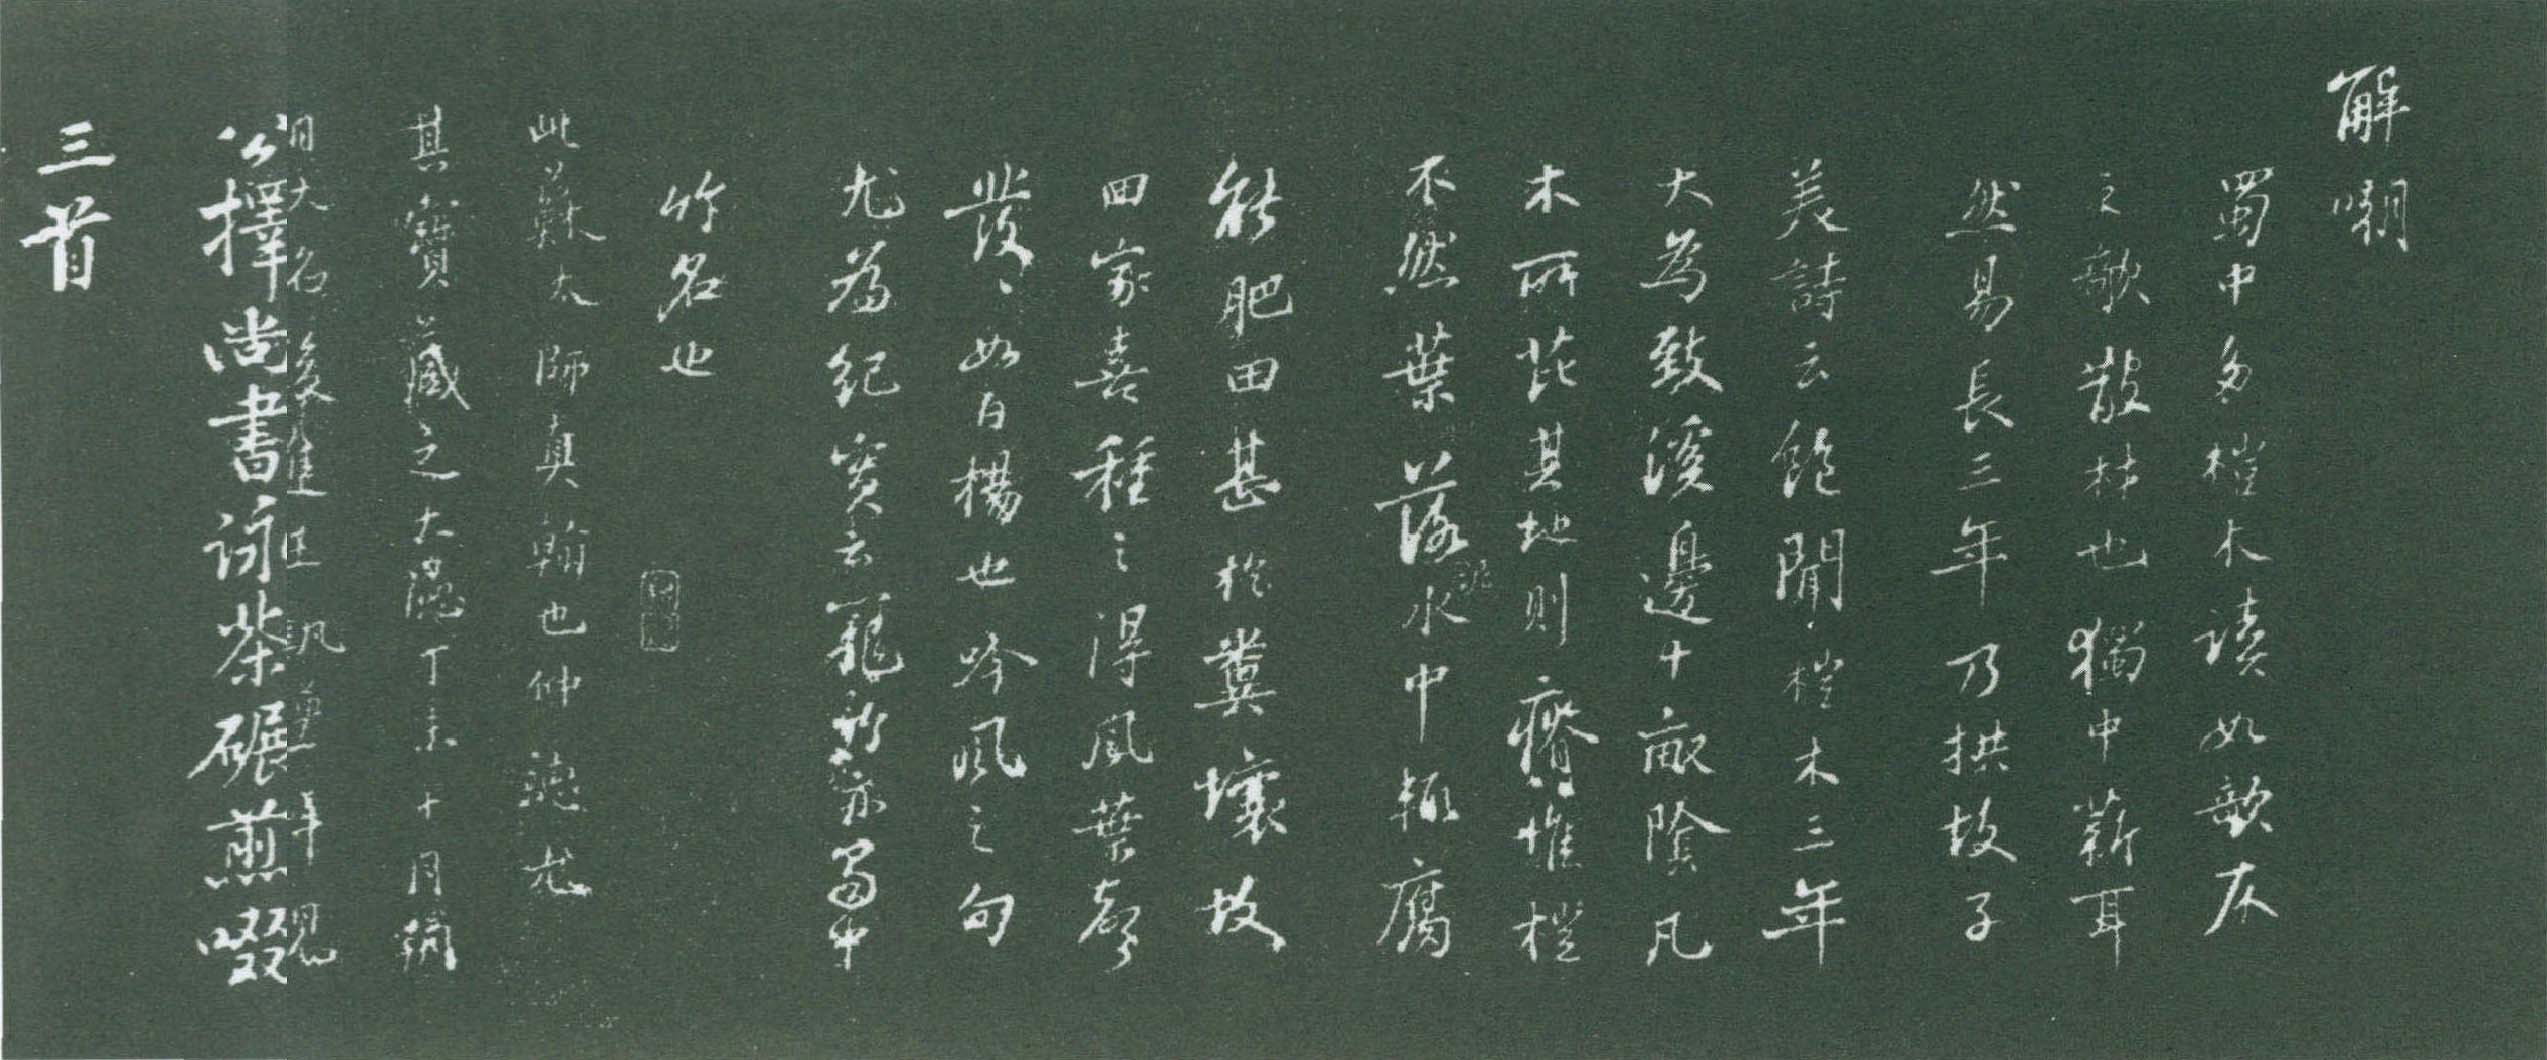 解嘲
蜀中多榿木讀如欹仄
之欹散材也獨中薪耳
然易長三年乃拱故子
美詩云飽聞榿木三年
大為致溪邊十畝陰凡
木所芘其地則瘠惟榿
不然葉落泥水中輒腐
能肥田甚於糞壤故
田家喜種之得風葉聲
發發如白楊也吟風之句
尤為紀實云籠竹亦蜀中
竹名也
此蘇太師真翰也仲
其寶藏之大德丁未十月
公擇尚書詠茶碾煎啜
三首